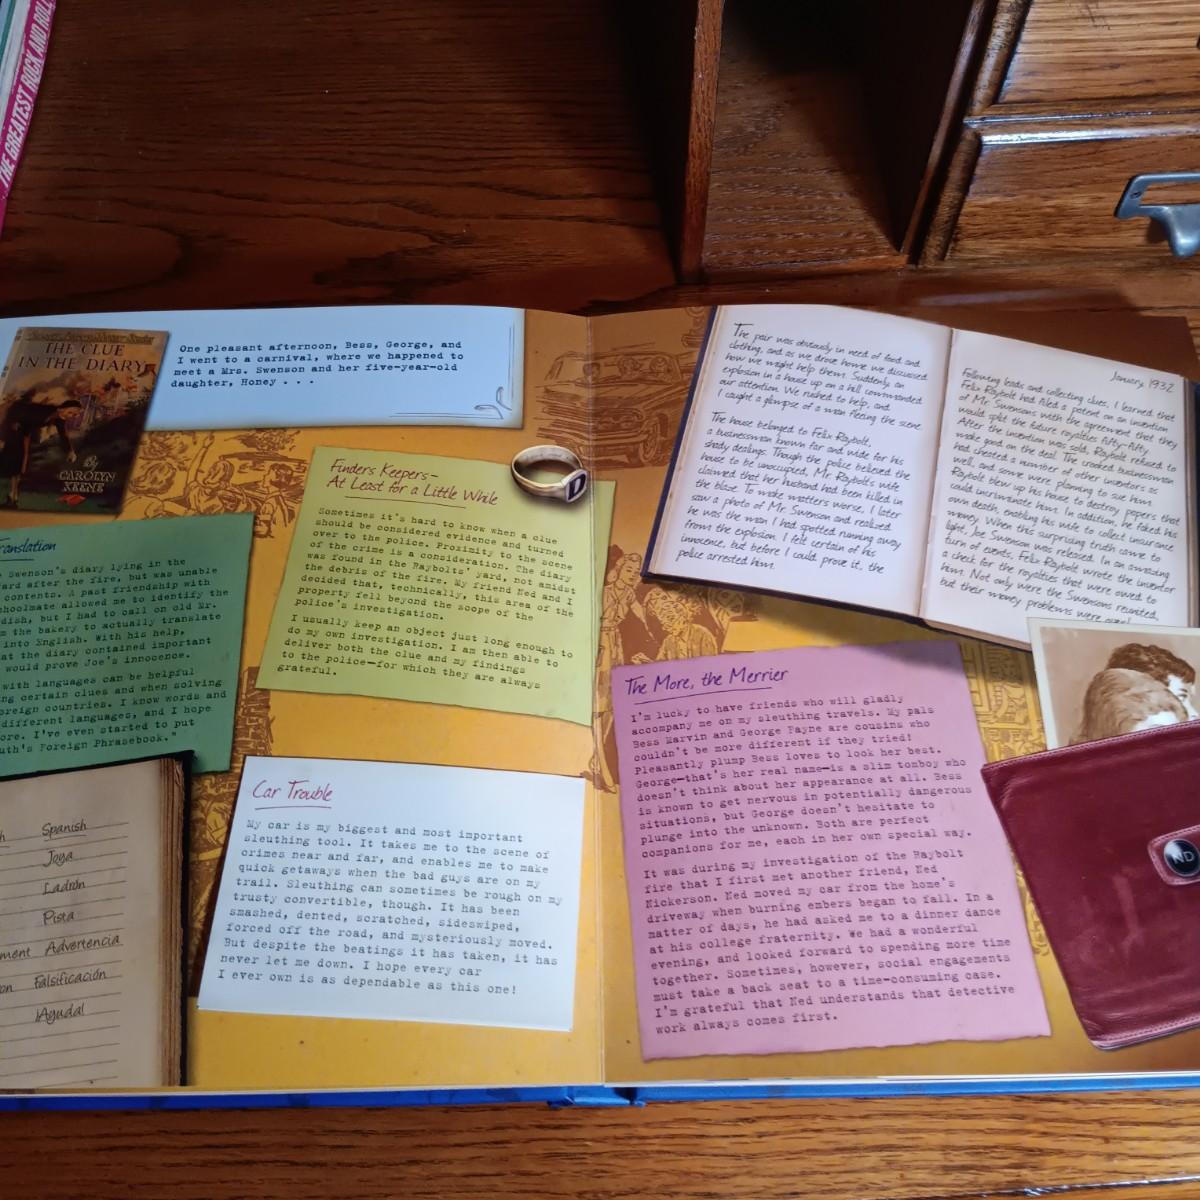 THE GREATEST ROCK AND ROLL
THE CLUE
IN THE DIARY
By
CAROLYN
KEENE
One pleasant afternoon, Bess, George, and
I went to a carnival, where we happened to
meet a Mrs. Swenson and her five-year-old
daughter, Honey . . .
Translation
Swenson's diary lying in the
yard after the fire, but was unable
contents. A past friendship with
schoolmate allowed me to identify the
dish, but I had to call on old Mr.
the bakery to actually translate
into English. With his help,
at the diary contained important
would prove Joe's innocence.
with languages can be helpful
ng certain clues and when solving
oreign countries. I know words and
different languages, and I hope
ore. I've even started to put
uth's Foreign Phrasebook."
h Spanish
Joya
Ladrón
Pista
ment Advertencia
on Falsificación
¡Ayuda!
Finders Keepers–
At Least for a Little While
Sometimes it's hard to know when a clue
should be considered evidence and turned
over to the police. Proximity to the scene
of the crime is a consideration. The diary
was found in the Raybolts' yard, not amidst
the debris of the fire. My friend Ned and I
decided that, technically, this area of the
property fell beyond the scope of the
police's investigation.
I usually keep an object just long enough to
do my own investigation. I am then able to
deliver both the clue and my findings
to the police—for which they are always
grateful.
D
Car Trouble
My car is my biggest and most important
sleuthing tool. It takes me to the scene of
crimes near and far, and enables me to make
quick getaways when the bad guys are on my
trail. Sleuthing can sometimes be rough on my
trusty convertible, though. It has been
smashed, dented, scratched, sideswiped,
forced off the road, and mysteriously moved.
But despite the beatings it has taken, it has
never let me down. I hope every car
I ever own is as dependable as this one!
The pair was obviously in need of food and
clothing, and as we drove home we discussed
how we might help them. Suddenly, an
explosion in a house up on a hill commanded
our attention. We rushed to help, and
I caught a glimpse of a man fleeing the scene.
The house belonged to Felix Raybolt,
a businessman known far and wide for his
shady dealings. Though the police believed the
house to be unoccupied, Mr. Raybolt's wife
claimed that her husband had been killed in
the blaze. To make matters worse, I later
saw a photo of Mr. Swenson and realized
he was the man I had spotted running away
from the explosion. I felt certain of his
innocence, but before I could prove it, the
police arrested him.
January, 1932
Following leads and collecting clues, I learned that
Felix Raybolt had filed a patent on an invention
of Mr. Swenson's with the agreement that they
would split the future royalties fifty-fifty.
After the invention was sold, Raybolt refused to
make good on the deal. The crooked businessman
had cheated a number of other inventors as
well, and some were planning to sue him.
Raybolt blew up his house to destroy papers that
could incriminate him. In addition, he faked his
own death, enabling his wife to collect insurance
money. When this surprising truth came to
light, Joe Swenson was released. In an amazing
turn of events, Felix Raybolt wrote the inventor
a check for the royalties that were owed to
him. Not only were the Swensons reunited,
but their money problems were over!
The More, the Merrier
I'm lucky to have friends who will gladly
accompany me on my sleuthing travels. My pals
Bess Marvin and George Fayne are cousins who
couldn't be more different if they tried!
Pleasantly plump Bess loves to look her best.
George—that's her real name—is a slim tomboy who
doesn't think about her appearance at all. Bess
is known to get nervous in potentially dangerous
situations, but George doesn't hesitate to
plunge into the unknown. Both are perfect
companions for me, each in her own special way.
It was during my investigation of the Raybolt
fire that I first met another friend, Ned
Nickerson. Ned moved my car from the home's
driveway when burning embers began to fall. In a
matter of days, he had asked me to a dinner dance
at his college fraternity. We had a wonderful
evening, and looked forward to spending more time
together. Sometimes, however, social engagements
must take a back seat to a time-consuming case.
I'm grateful that Ned understands that detective
work always comes first.
ND